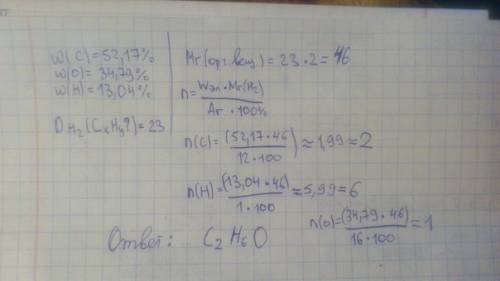 w(C)=52,17%
w(O)=34,79%
w(H)=13,04%
D H₂ (CxHy?)=23
Mr(орг вещ)=23·2=46
n=Wэл·Mr(H₂)/Ar·100%
n(C)=(52,17·46)/12·100≈1,99≈2
n(H)=(13,04·46)/1·100≈5,99≈6
n(O)=(34,79·46)/16·100≈1
Ответ: C₂H₆O